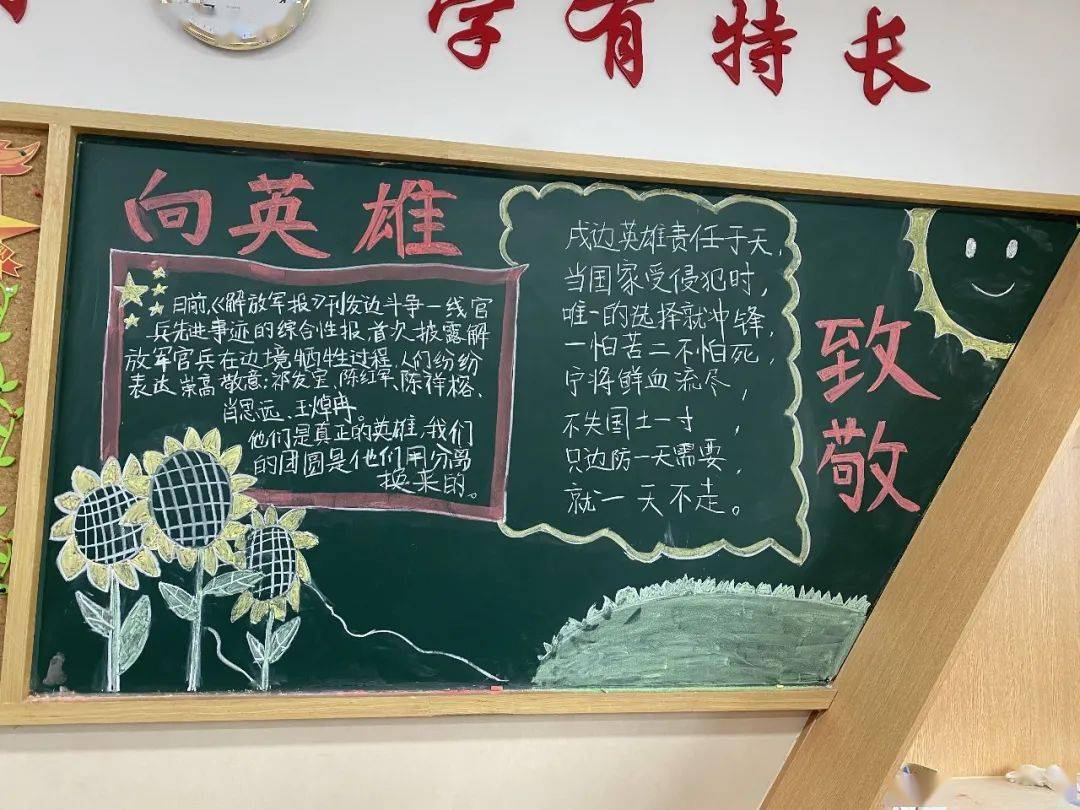 学有特长
向英雄
日前,《解放军报》刊发边斗争一线官
兵先进事迹的综合性报,首次披露解
放军官兵在边境牺牲过程,人们纷纷
表达崇高敬意:祁发宝、陈红军、陈祥榕、
肖思远、王焯冉。
他们是真正的英雄,我们
的团圆是他们用分离
换来的。
戍边英雄责任于天,
当国家受侵犯时,
唯一的选择就冲锋,
一怕苦二不怕死,
宁将鲜血流尽,
不失国土一寸,
只边防一天需要,
就一天不走。
致
敬